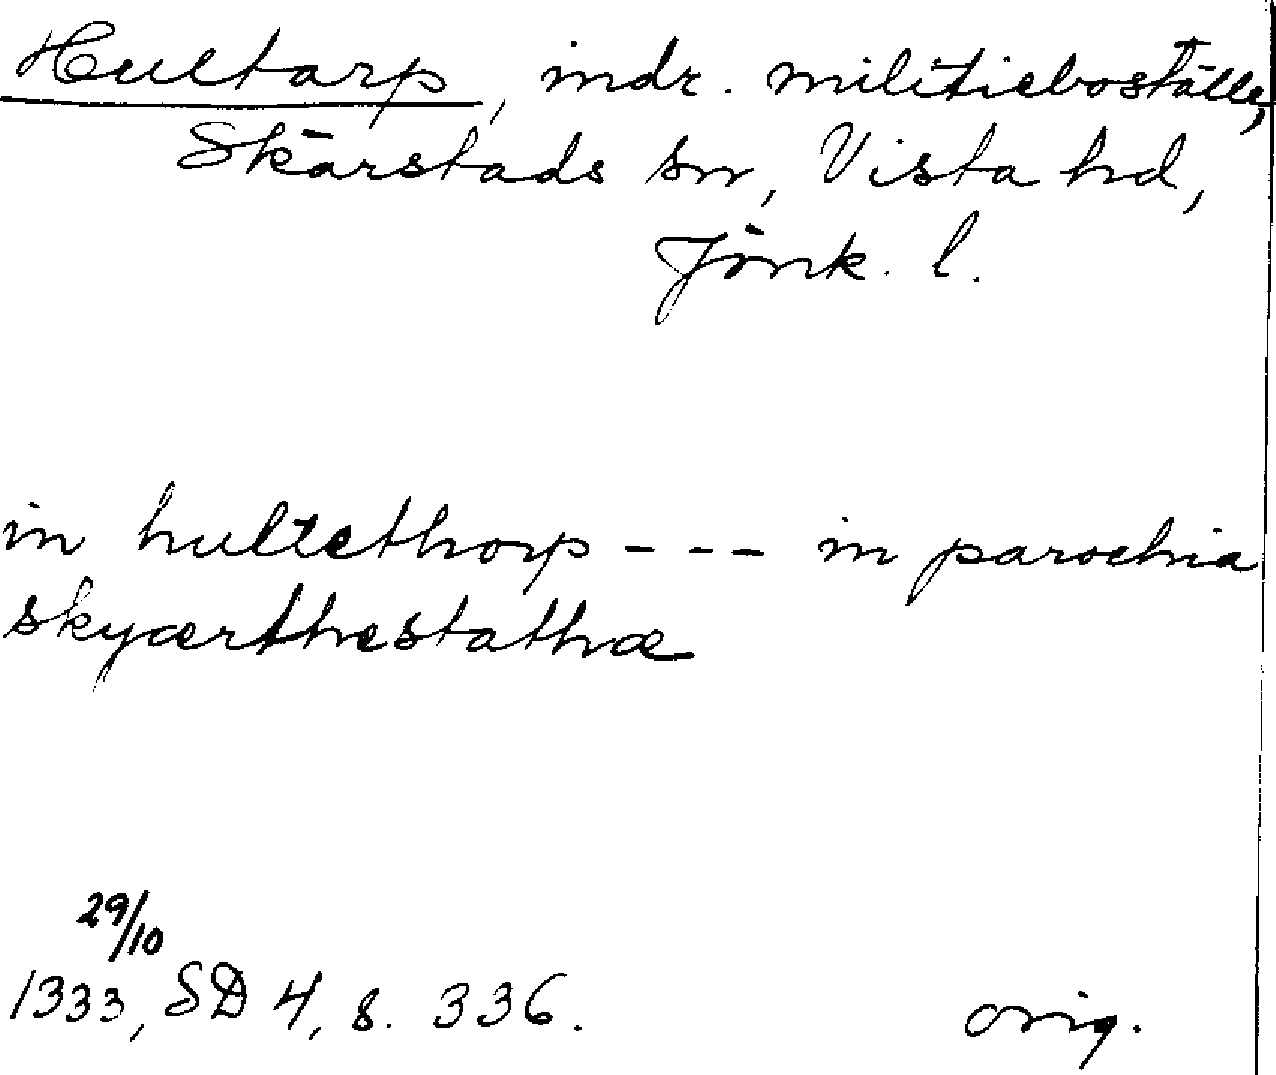 Hultarp, indr. militieboställe,
Skärstads sn, Vista hd,
Jönk. l.
in hultethorp - - - in parochia
skyærthestathæ
29/10
1333, SD 4, s. 336. orig.